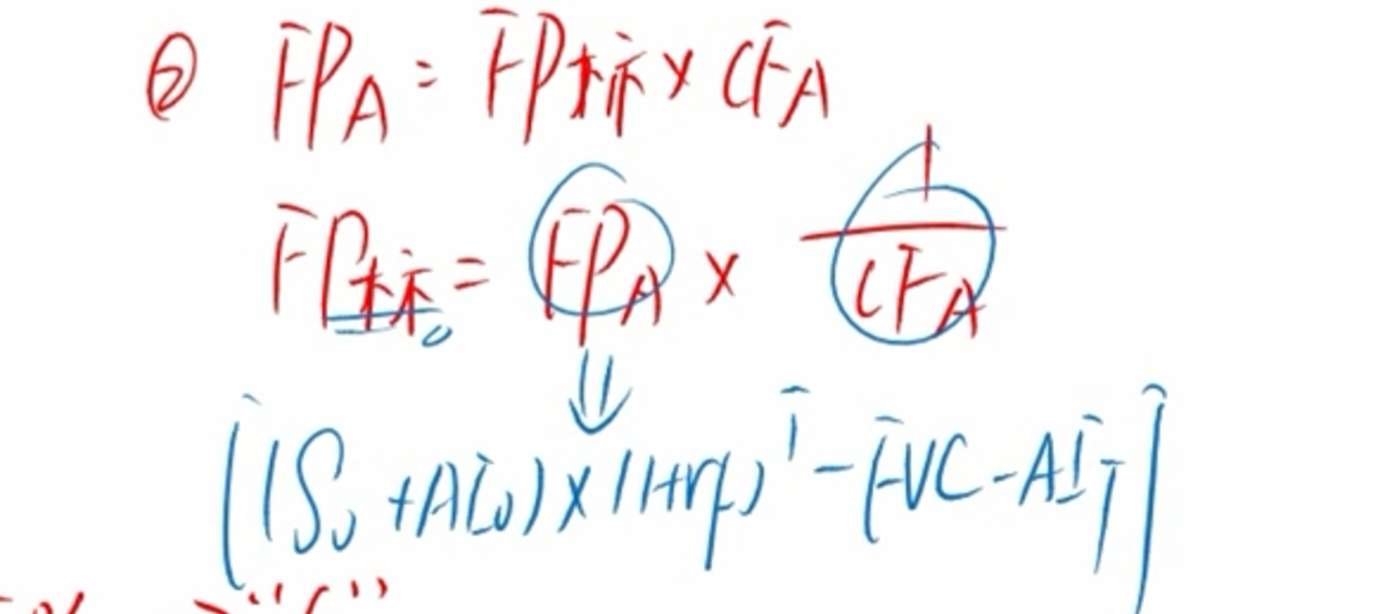 ② FP_A = FP标 × CF_A
FP标 = FP_A × 1/CF_A
⇓
[(S₀ + AI₀) × (1+rf)^T - FVC - AI_T]